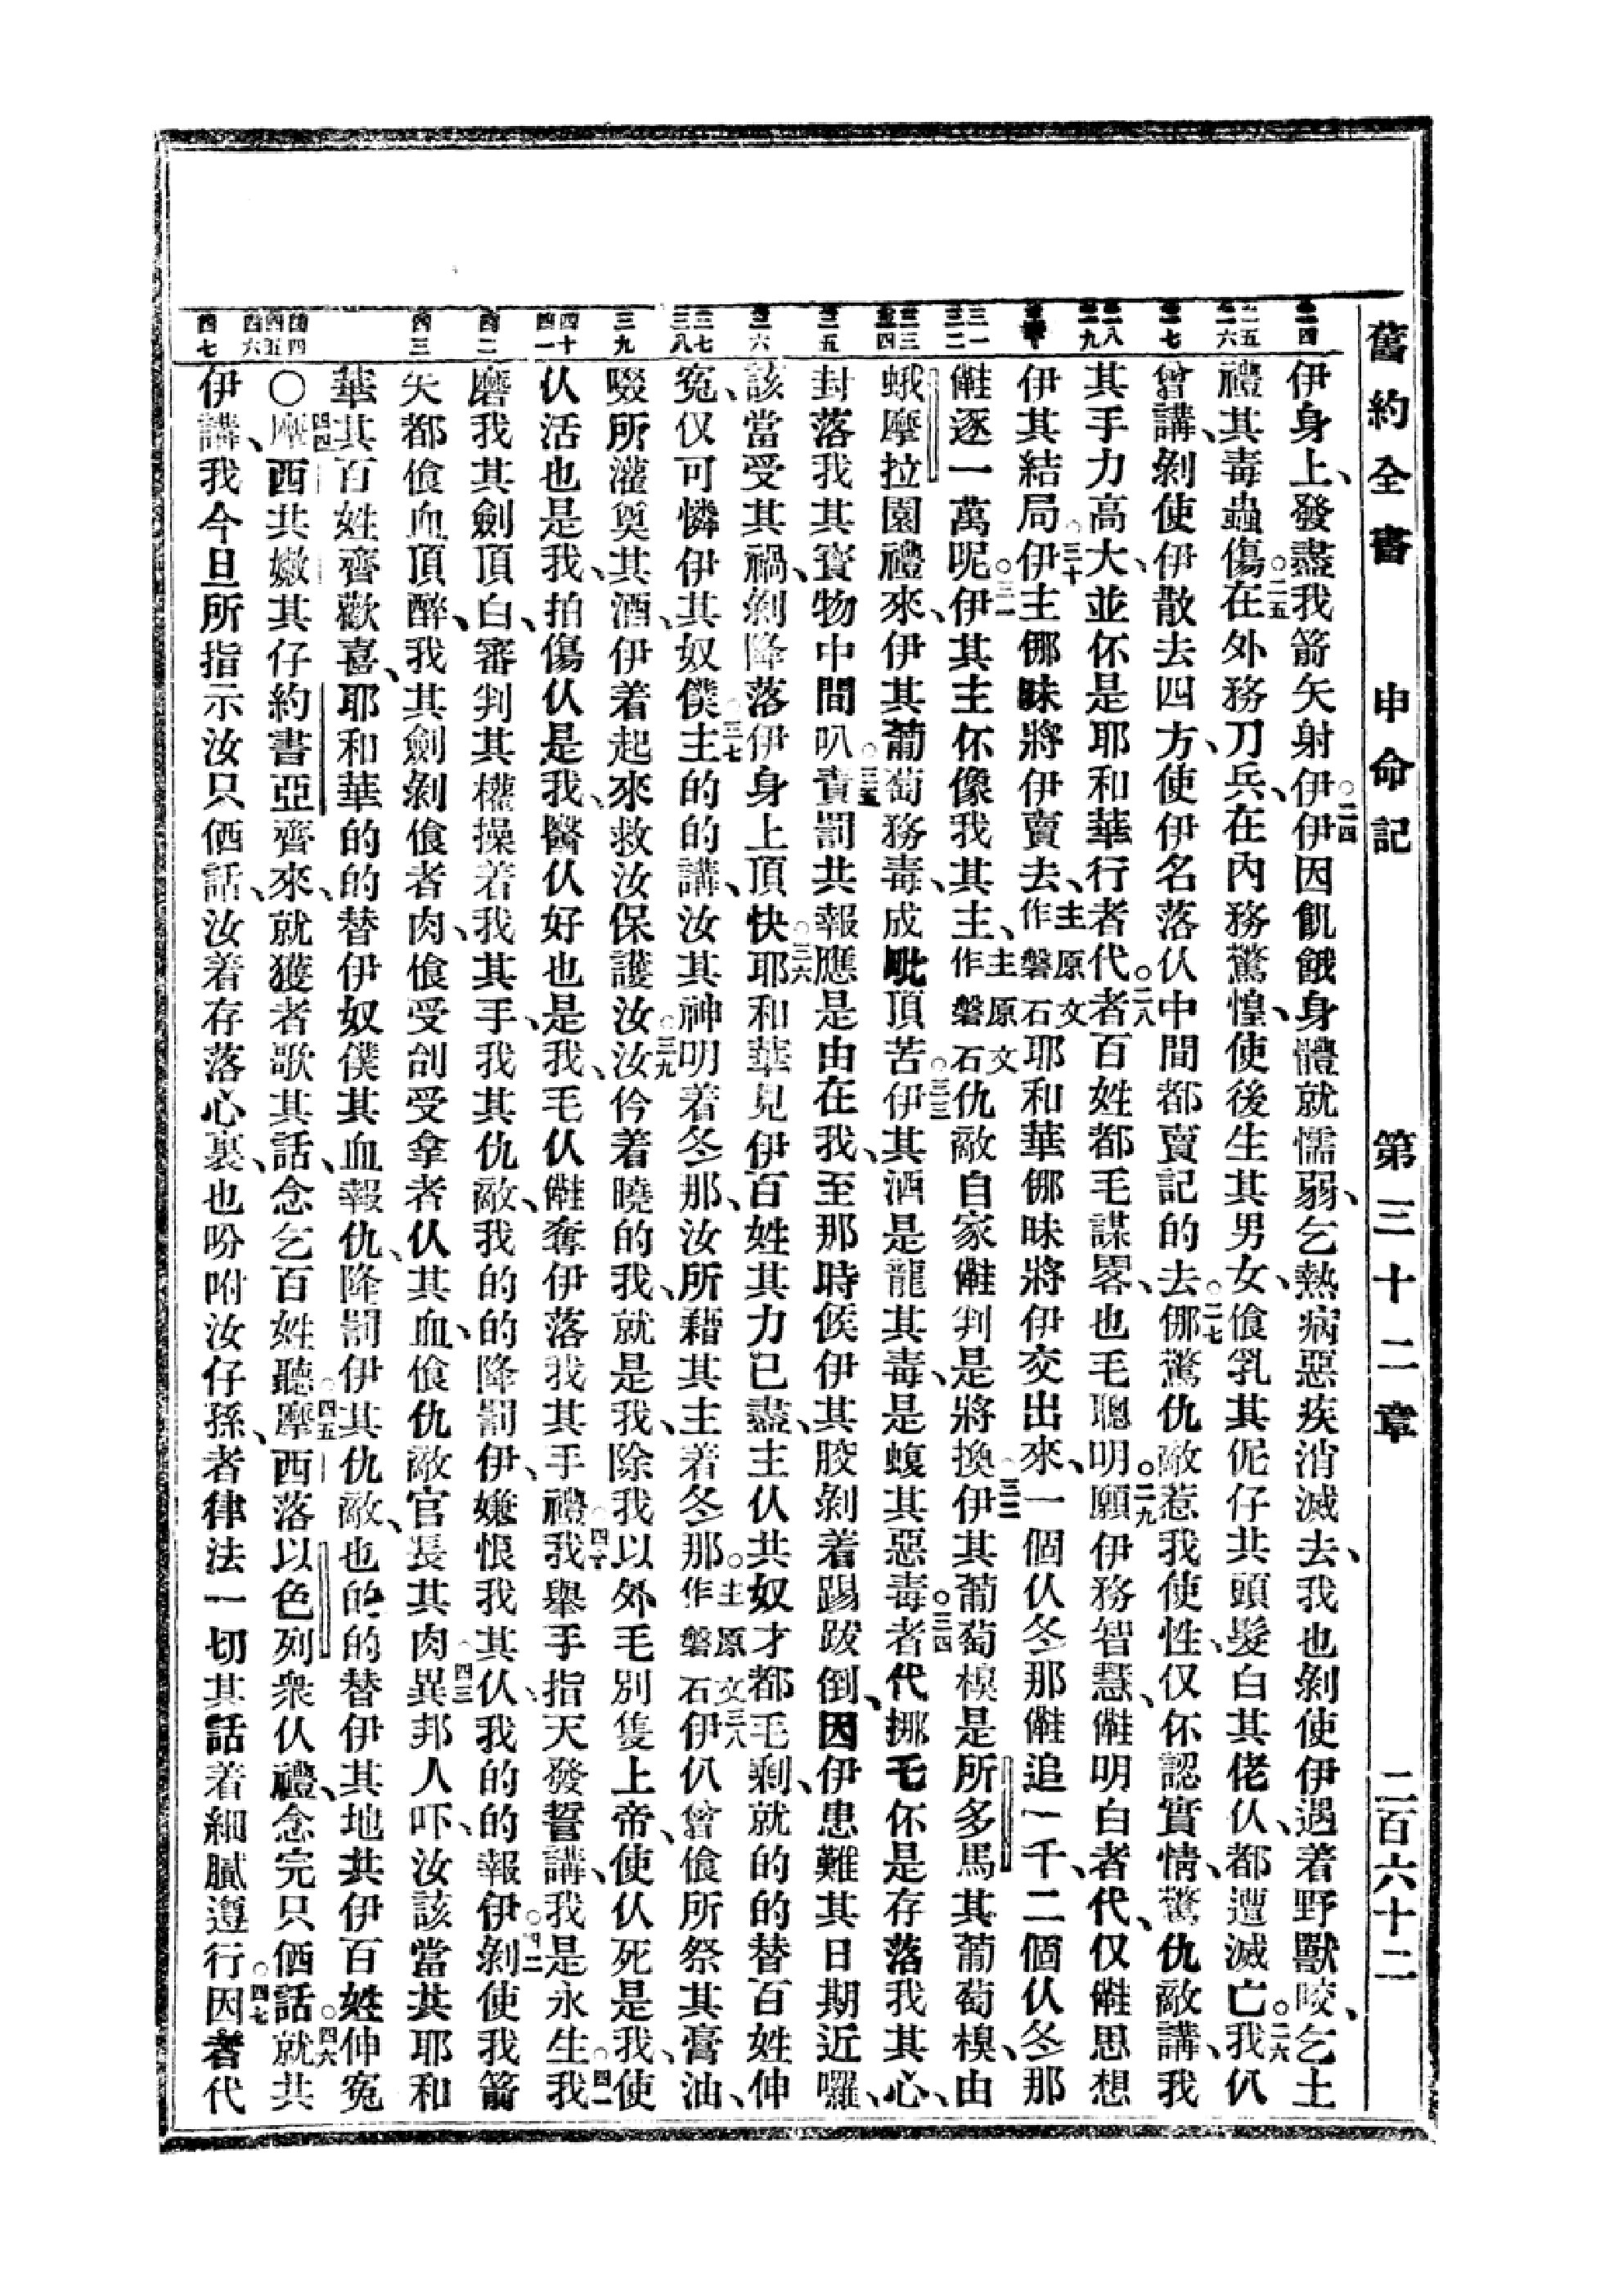 舊約全書 申命記 第三十二章 二百六十二
伊身上、發盡我箭矢射伊。二四伊因飢餓身體就懦弱、乞熱病惡疾消滅去、我也剝使伊遇着野獸咬、乞土
禮其毒蟲傷。二五在外務刀兵、在內務驚惶、使後生其男女、食乳其伲仔共頭髮白其佬仈、都遭滅亡。二六我仈
曾講、剝使伊散去四方、使伊名落仈中間都賣記的去。二七㑚驚仇敵惹我使性、仅伓認實情、驚仇敵講、我
其手力高大、並伓是耶和華行者代。二八者百姓都毛謀畧、也毛聰明。二九願伊務智慧、㒕明白者代、仅㒕思想
伊其結局。三十伊主㑚昧將伊賣去、主原文作磐石耶和華㑚昧將伊交出來、一個仈冬那㒕追一千、二個仈冬那
㒕逐一萬呢。三一伊其主伓像我其主、主原文作磐石仇敵自家㒕判是將換。三二伊其葡萄模是所多馬其葡萄模、由
蛾摩拉園禮來、伊其葡萄務毒、成毗頂苦。三三伊其酒是龍其毒、是蝮其惡毒。三四者代挪毛伓是存落我其心、
封落我其寳物中間叭。三五責罰共報應是由在我、至那時候伊其骹剝着踢跋倒、因伊患難其日期近囉、
該當受其禍、剝降落伊身上頂快。三六耶和華見伊百姓其力已盡、主仈共奴才都毛剩、就的的替百姓伸
寃、仅可憐伊其奴僕。三七主的的講、汝其神明着冬那、汝所藉其主着冬那。主原文作磐石三八伊仈曾食所祭其膏油、
啜所灌奠其酒、伊着起來救汝保護汝。三九汝仱着曉的我、我就是我、除我以外毛別隻上帝、使仈死是我、使
仈活也是我、拍傷仈是我、醫仈好也是我、毛仈㒕奪伊落我其手禮。四十我舉手指天發誓講、我是永生。四一我
磨我其劍頂白、審判其權操着我其手、我其仇敵、我的的降罰伊、嫌恨我其仈、我的的報伊。四二剝使我箭
矢都食血頂醉、我其劍剝食者肉、食受刣受拿者仈其血、食仇敵官長其肉。四三異邦人吓、汝該當共耶和
華其百姓齊歡喜、耶和華的的替伊奴僕其血報仇、降罰伊其仇敵、也的的替伊其地共伊百姓伸寃
〇四四摩西共嫩其仔約書亞齊來、就獲者歌其話、念乞百姓聽。四五摩西落以色列衆仈禮、念完只価話。四六就共
伊講、我今旦所指示汝只価話、汝着存落心裏、也吩咐汝仔孫、者律法一切其話着細膩遵行。四七因者代